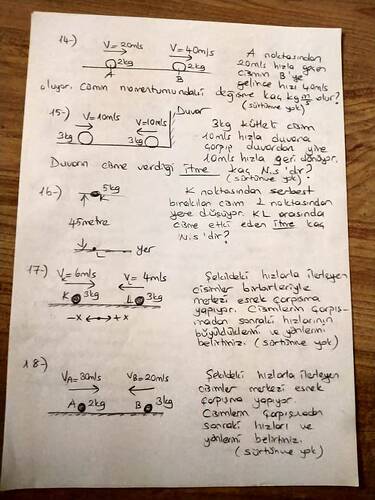 14-) V=20m/s V=40m/s
2kg 2kg
A B
A noktasından
20m/s hızla geçen
cismin B'ye
gelince hızı 40m/s
oluyor. Cismin momentumundaki değişme kaç kg m/s olur?
(sürtünme yok)
15-) V=10m/s V=10m/s Duvar
3kg 3kg
3kg kütleli cisim
10m/s hızla duvara
çarpıp duvardan yine
10m/s hızla geri dönüyor.
Duvarın cisme verdiği itme kaç N.s'dir?
(sürtünme yok)
16-) 5kg
K
45metre
L yer
K noktasından serbest
bırakılan cisim L noktasından
yere düşüyor. KL arasında
cisme etki eden itme kaç
N.s'dir?
17-) VK=6m/s VL=4m/s
K 3kg L 3kg
-x +x
Şekildeki hızlarla ilerleyen
cisimler birbirleriyle
merkezi esnek çarpışma
yapıyor. Cisimlerin çarpış-
madan sonraki hızlarının
büyüdüklerini ve yönlerini
belirtiniz. (sürtünme yok)
18-) VA=30m/s VB=20m/s
A 2kg B 3kg
Şekildeki hızlarla ilerleyen
cisimler merkezi esnek
çarpışma yapıyor.
Cisimlerin çarpışmadan
sonraki hızları ve
yönlerini belirtiniz.
(sürtünme yok)